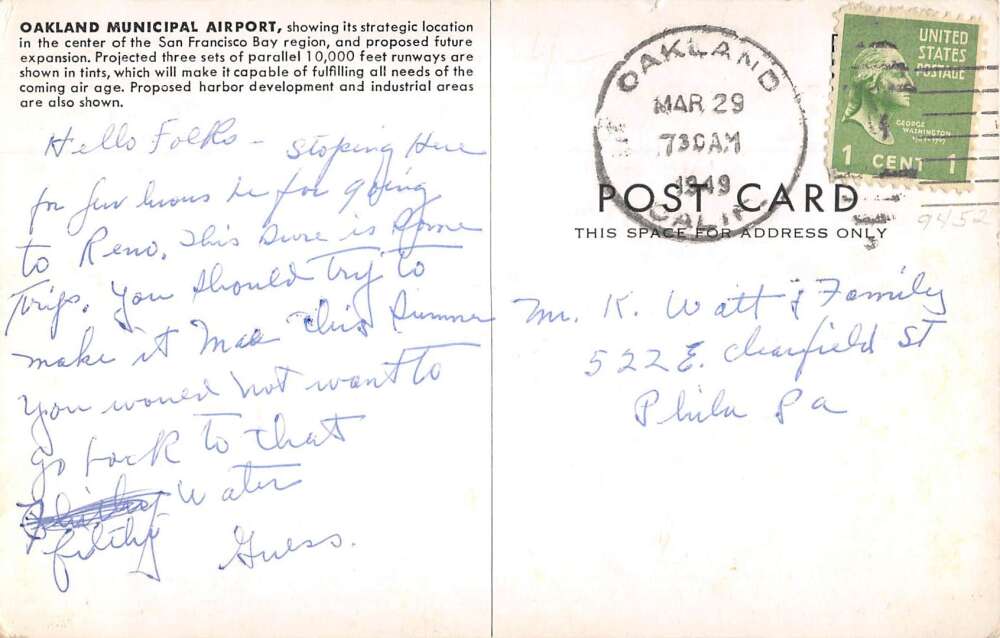 OAKLAND MUNICIPAL AIRPORT, showing its strategic location
in the center of the San Francisco Bay region, and proposed future
expansion. Projected three sets of parallel 10,000 feet runways are
shown in tints, which will make it capable of fulfilling all needs of the
coming air age. Proposed harbor development and industrial areas
are also shown.
Hello Folks – stoping Here
for few hours be for going
to Reno. This sure is some
Trip. You should try to
make it Mac this summer
You would not want to
go back to that
Water
filthy Guess.
OAKLAND
MAR 29
730AM
1949
CALIF.
UNITED
STATES
POSTAGE
GEORGE
WASHINGTON
1 CENT 1
POST CARD
THIS SPACE FOR ADDRESS ONLY
9452
Mr. K. Watt & Family
522 E. Clearfield St
Phila Pa